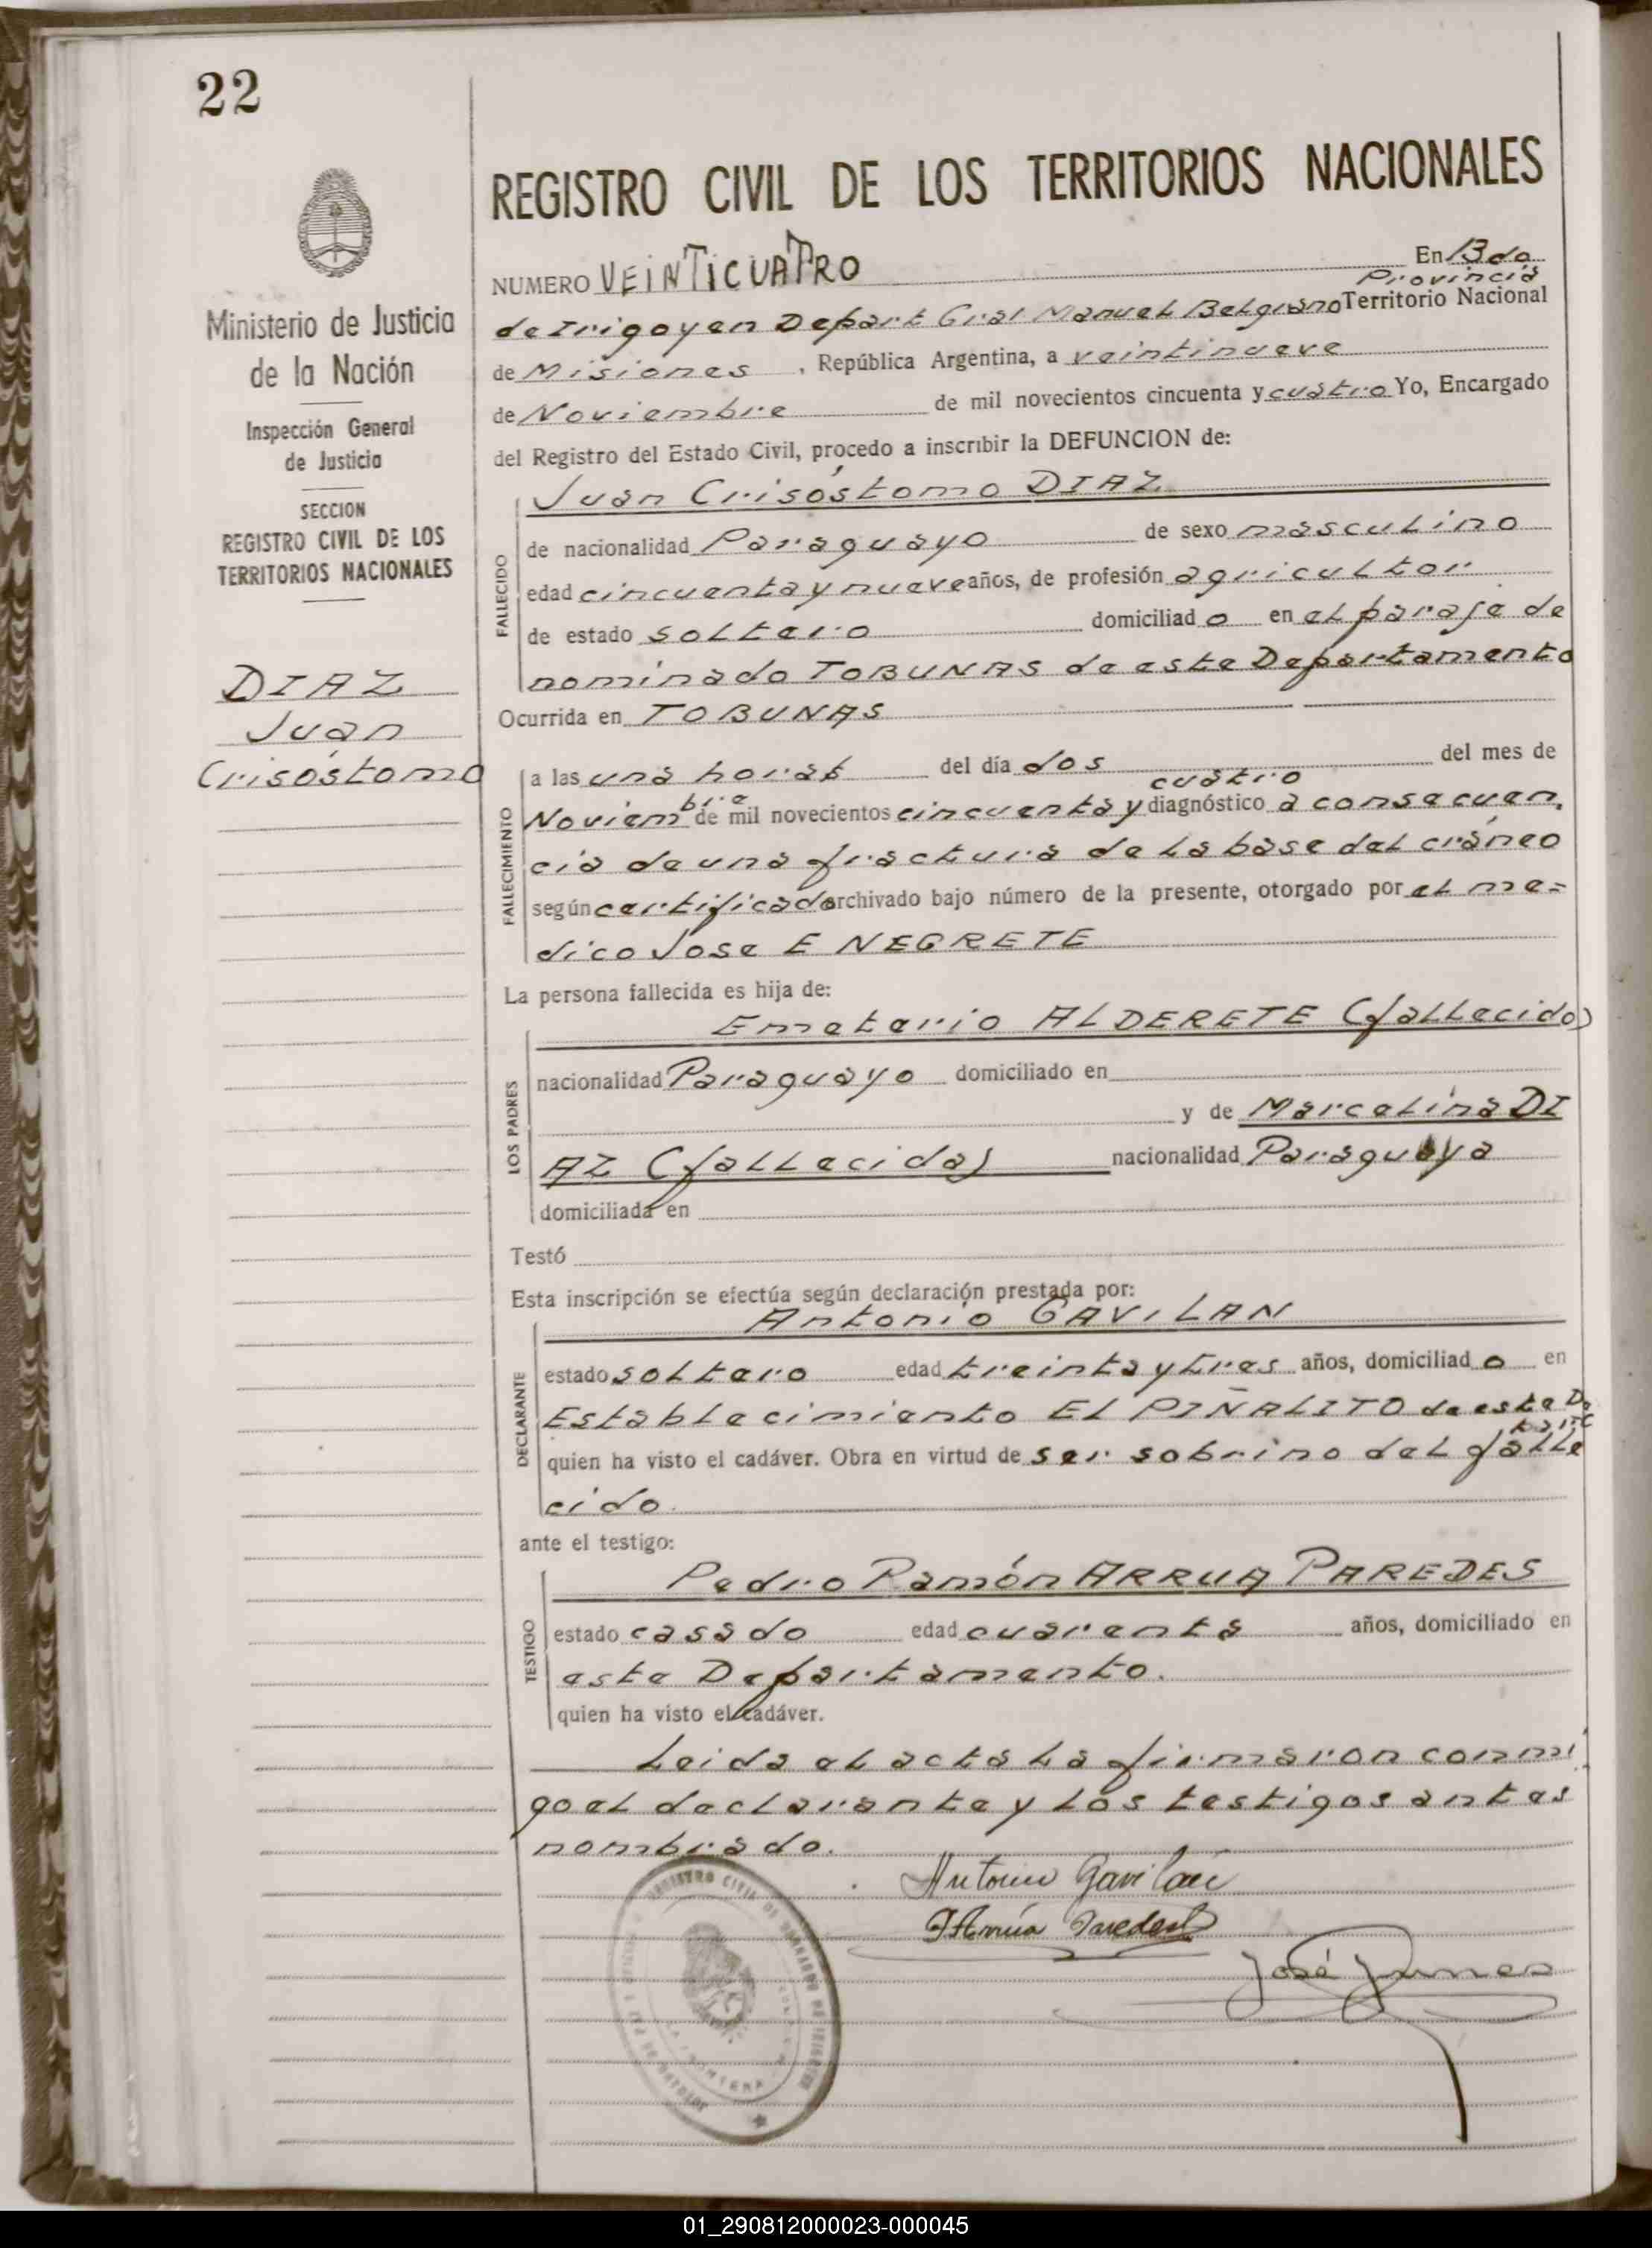 22
REGISTRO CIVIL DE LOS TERRITORIOS NACIONALES
Ministerio de Justicia
de la Nación
Inspección General
de Justicia
SECCION
REGISTRO CIVIL DE LOS
TERRITORIOS NACIONALES
DIAZ
Juan
Crisóstomo
NUMERO VEINTICUATRO En Bdo
Provincia
de Irigoyen Depart Gral Manuel Belgrano Territorio Nacional
de Misiones , República Argentina, a veintinueve
de Noviembre de mil novecientos cincuenta y cuatro Yo, Encargado
del Registro del Estado Civil, procedo a inscribir la DEFUNCION de:
Juan Crisóstomo DIAZ
FALLECIDO
de nacionalidad Paraguayo de sexo masculino
edad cincuenta y nueve años, de profesión agricultor
de estado soltero domiciliad o en el paraje de
nominado TOBUNAS de este Departamento
Ocurrida en TOBUNAS
FALLECIMIENTO
a las una horas del día dos del mes de
cuatro
Noviembre de mil novecientos cincuenta y diagnóstico a consecuen
cia de una fractura de la base del cráneo
según certificado archivado bajo número de la presente, otorgado por el me=
dico Jose E NEGRETE
La persona fallecida es hija de:
LOS PADRES
Emeterio ALDERETE (fallecido)
nacionalidad Paraguayo domiciliado en
y de Marcelina DI
AZ (fallecida) nacionalidad Paraguaya
domiciliada en
Testó
Esta inscripción se efectúa según declaración prestada por:
DECLARANTE
Antonio GAVILAN
estado soltero edad treinta y tres años, domiciliad o en
Establecimiento EL PIÑALITO de este D
quien ha visto el cadáver. Obra en virtud de ser sobrino del falle
cido.
ante el testigo:
TESTIGO
Pedro Ramón ARRUA PAREDES
estado casado edad cuarenta años, domiciliado en
este Departamento.
quien ha visto el cadáver.
Leida el acta la firmaron conmi
go el declarante y los testigos antes
nombrado.
Antonio Gavilán
PArrúa Paredes
José
REGISTRO CIVIL DE BERNARDO DE IRIGOYEN
01_290812000023-000045